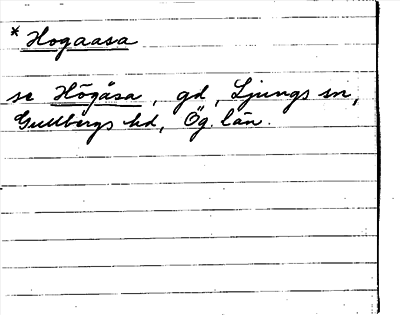 * Hogaasa
se Högåsa, gd, Ljungs sn,
Gullbergs hd, Ög. län.